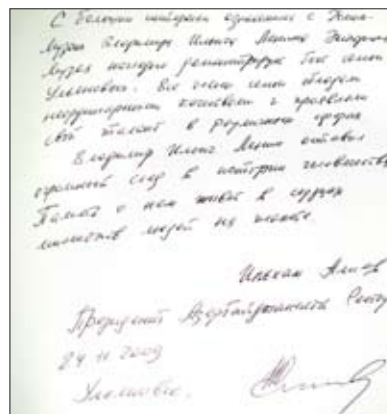 С большим интересом ознакомился с Домом-
Музеем Владимира Ильича Ленина. Экспозиция
Музея наглядно демонстрирует быт семьи
Ульяновых. Все члены семьи обладали
неординарными качествами и проявляли
свой талант в различных сферах
Владимир Ильич Ленин оставил
огромный след в истории человечества
Память о нем живёт в сердцах
миллионов людей на планете.
Ильхам Алиев
Президент Азербайджанской Респу
24 11 2009
Ульяновск.